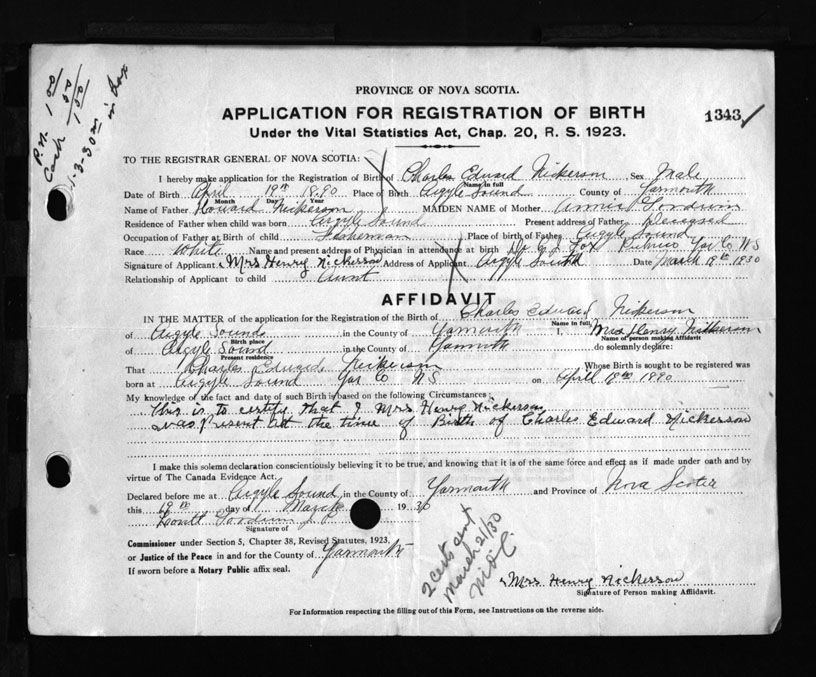 P.N. 1 00
Cash 1 00
1-3-30
PROVINCE OF NOVA SCOTIA.
APPLICATION FOR REGISTRATION OF BIRTH
1343
Under the Vital Statistics Act, Chap. 20, R. S. 1923.
TO THE REGISTRAR GENERAL OF NOVA SCOTIA:
I hereby make application for the Registration of Birth of Charles Edward Nickerson Sex Male
Name in full
Date of Birth April 19th 1880 Place of Birth Argyle Sound County of Yarmouth
Month Day Year
Name of Father Howard Nickerson MAIDEN NAME of Mother Annie Goodwin
Residence of Father when child was born Argyle Sound Present address of Father Deceased
Occupation of Father at Birth of child Fisherman Place of birth of Father Argyle Sound
Race White Name and present address of Physician in attendance at birth Dr. Fox Pubnico Yar Co NS
Signature of Applicant Mrs Henry Nickerson Address of Applicant Argyle South Date March 19th 1930
Relationship of Applicant to child Aunt
AFFIDAVIT
IN THE MATTER of the application for the Registration of the Birth of Charles Edward Nickerson
Name in full
of Argyle Sound in the County of Yarmouth I, Mrs Henry Nickerson
Birth place
Name of person making Affidavit
of Argyle Sound in the County of Yarmouth do solemnly declare:
Present residence
That Charles Edward Nickerson Whose Birth is sought to be registered was
born at Argyle Sound Yar Co NS on April 19th 1880
My knowledge of the fact and date of such Birth is based on the following Circumstances:
This is to certify that I Mrs Henry Nickerson
was present at the time of Birth of Charles Edward Nickerson
I make this solemn declaration conscientiously believing it to be true, and knowing that it is of the same force and effect as if made under oath and by
virtue of The Canada Evidence Act.
Declared before me at Argyle Sound in the County of Yarmouth and Province of Nova Scotia
this 19th day of March 1930
Goodwin J. P.
Signature of
Commissioner under Section 5, Chapter 38, Revised Statutes, 1923,
or Justice of the Peace in and for the County of Yarmouth
If sworn before a Notary Public affix seal.
2 certs sent
March 21/30
Mrs Henry Nickerson
Signature of Person making Affidavit.
For Information respecting the filling out of this Form, see Instructions on the reverse side.